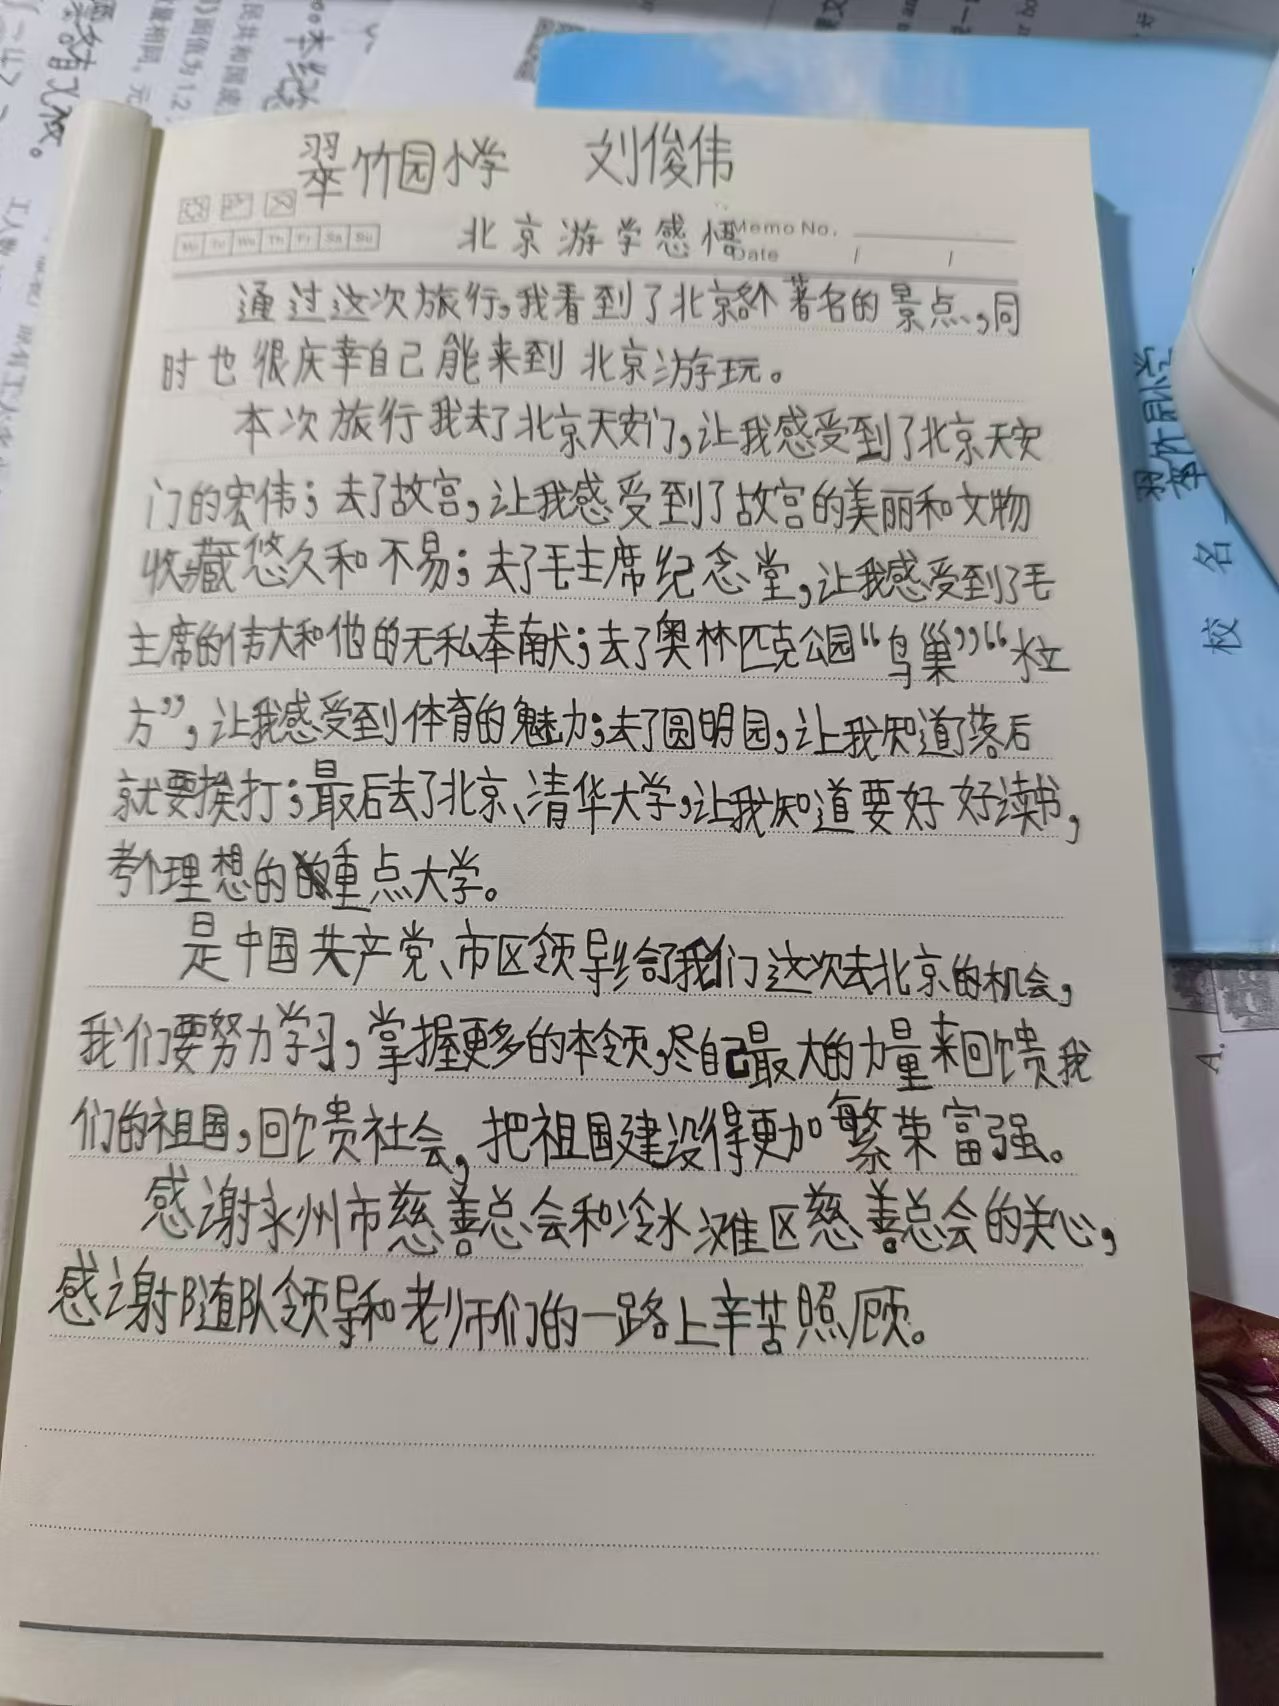 翠竹园小学 刘俊伟
Mo Tu We Th Fr Sa Su
北京游学感悟
Memo No.
Date / /
通过这次旅行,我看到了北京各个著名的景点,同
时也很庆幸自己能来到北京游玩。
本次旅行我去了北京天安门,让我感受到了北京天安
门的宏伟;去了故宫,让我感受到了故宫的美丽和文物
收藏悠久和不易;去了毛主席纪念堂,让我感受到了毛
主席的伟大和他的无私奉献;去了奥林匹克公园“鸟巢”“水立
方”,让我感受到体育的魅力;去了圆明园,让我知道了落后
就要挨打;最后去了北京、清华大学,让我知道要好好读书,
考个理想的重点大学。
是中国共产党、市区领导给了我们这次去北京的机会,
我们要努力学习,掌握更多的本领,尽自己最大的力量来回馈我
们的祖国,回馈社会,把祖国建设得更加繁荣富强。
感谢永州市慈善总会和冷水滩区慈善总会的关心,
感谢随队领导和老师们的一路上辛苦照顾。
校名
A.